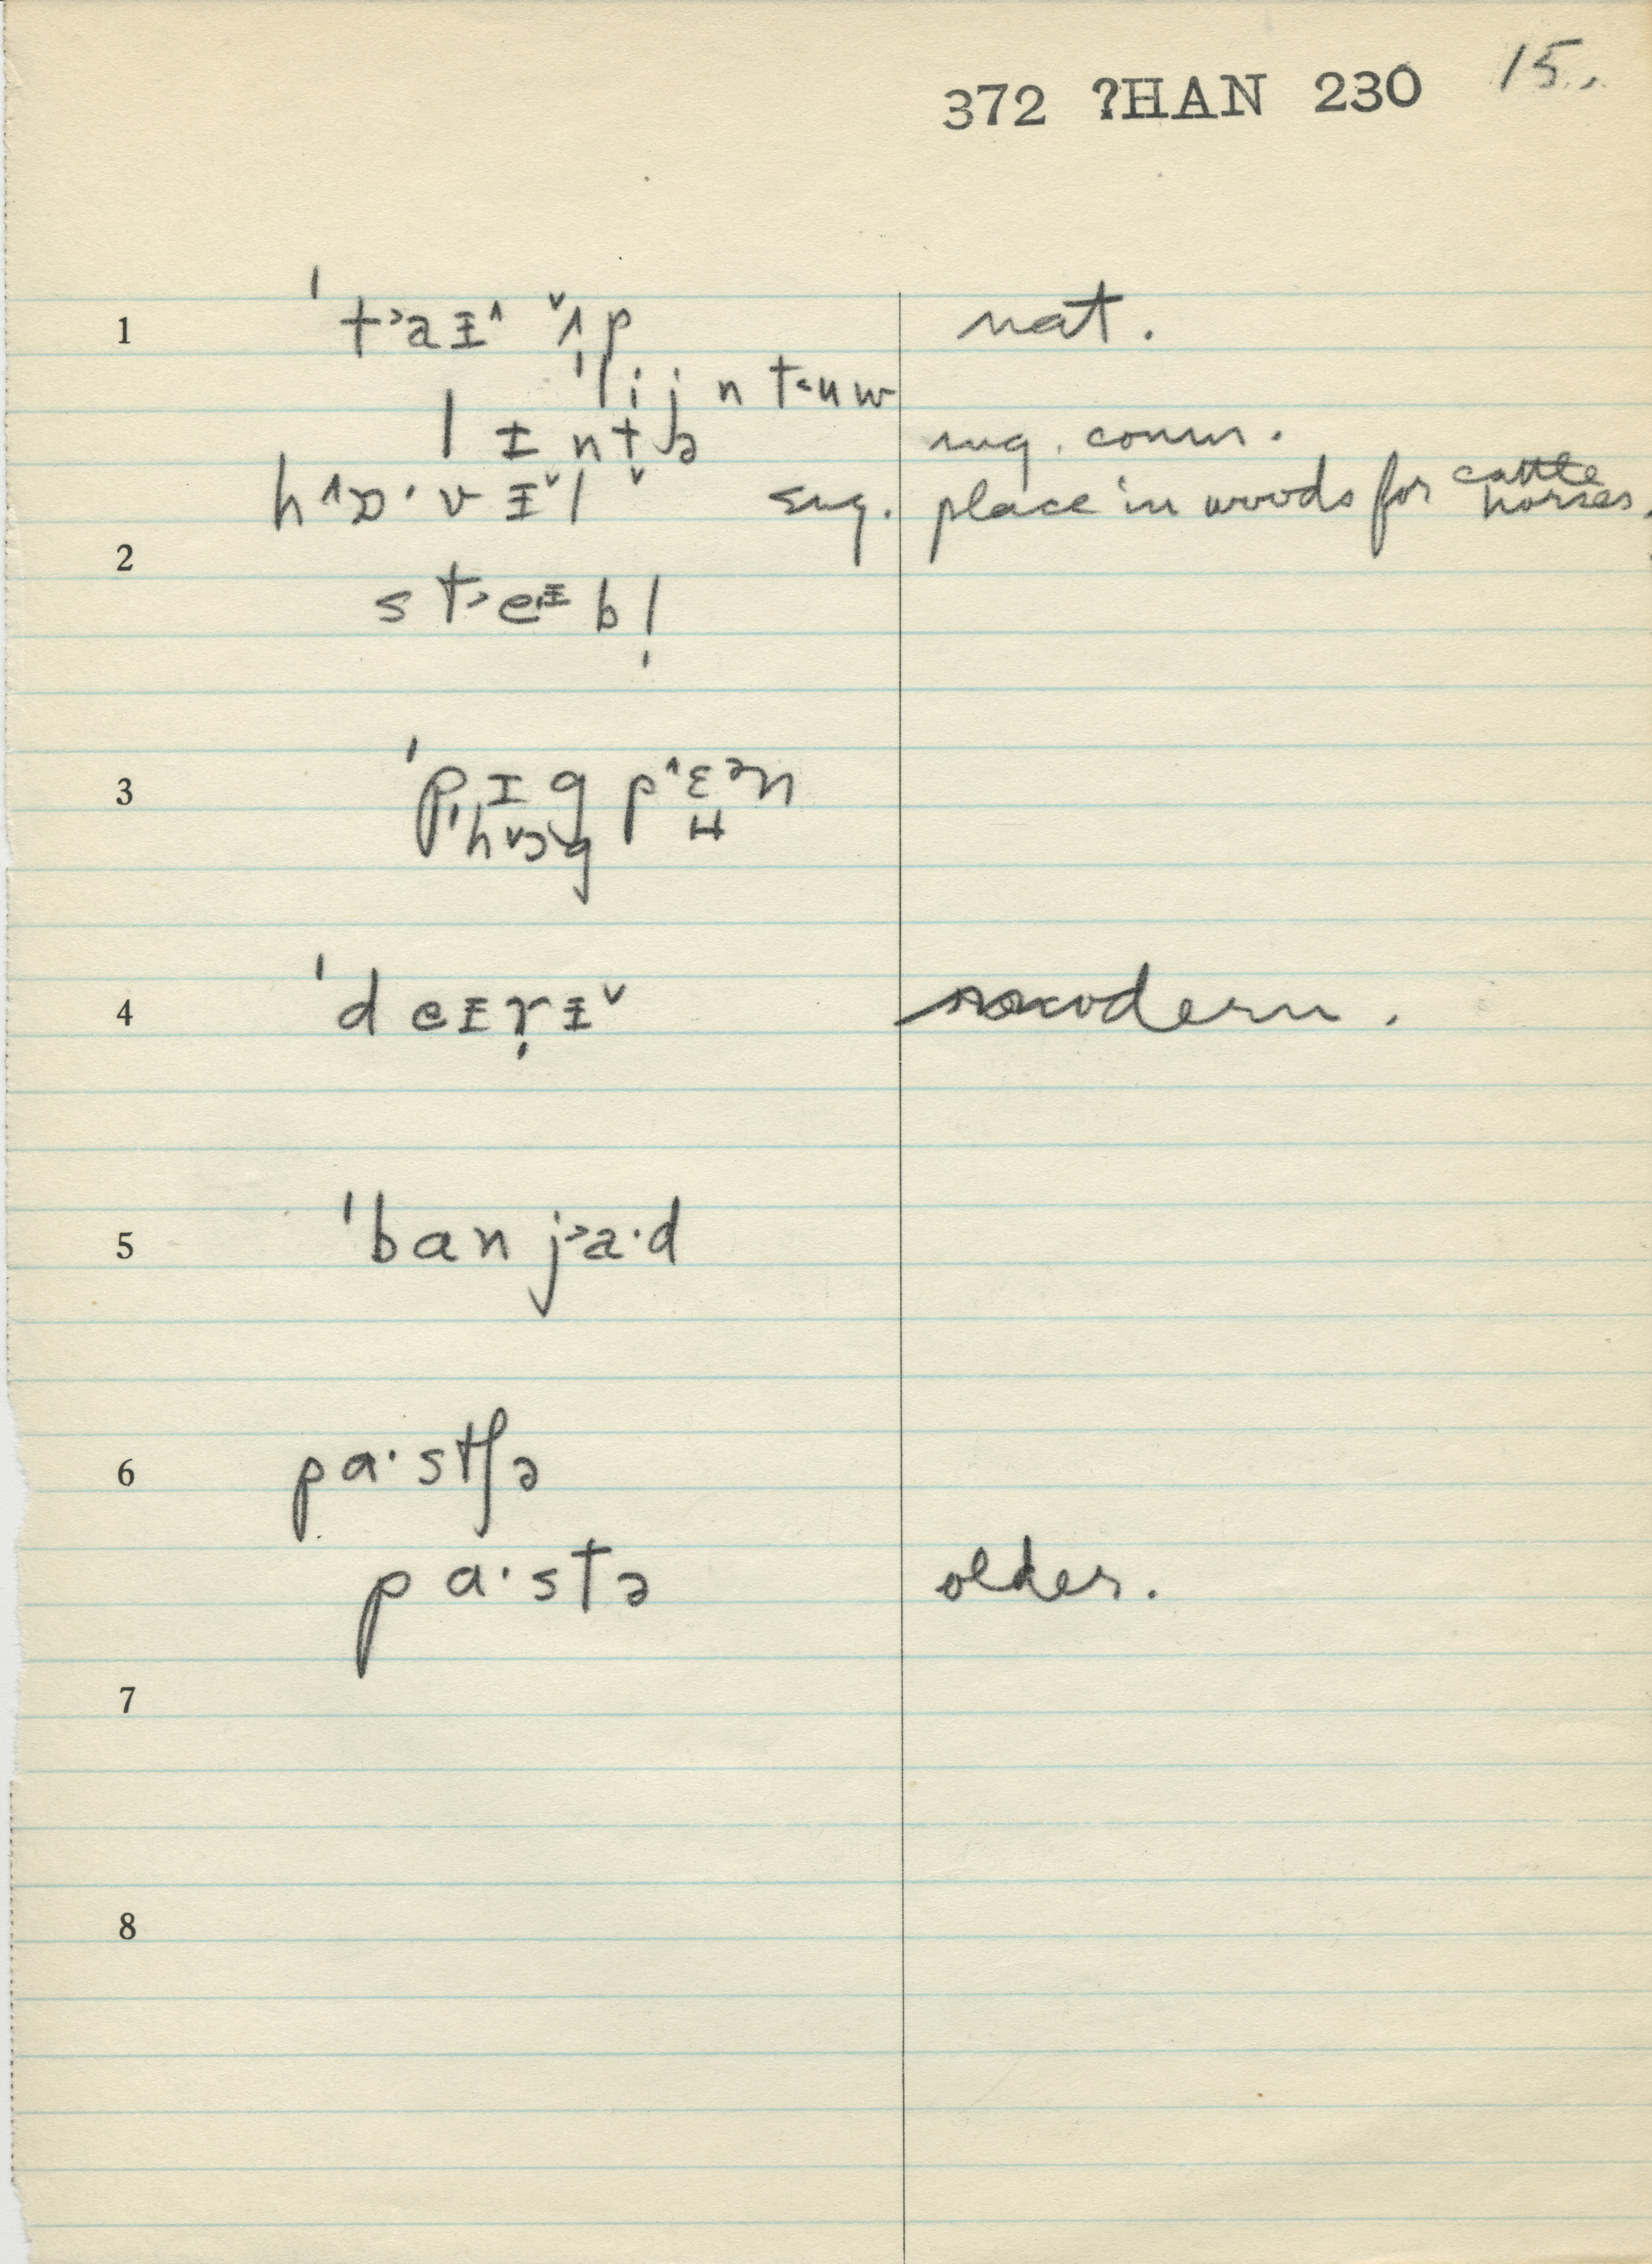 372 ?HAN 230 15.
1 ˈt˃aɪ^ ˇʌp nat.
ˈlijn t˂uw
lɪntə sug. comm.
h^ɒ·vɪˇl ˇ sug. place in woods for cattle horses.
2
st˃eɪbl̩
3 ˈpɪg p^ɛᵊn
ˈhˇɔg
4 ˈdeɪrɪˇ modern.
5 ˈban j˃a·d
6 pa·stʃə
pa·stə older.
7
8